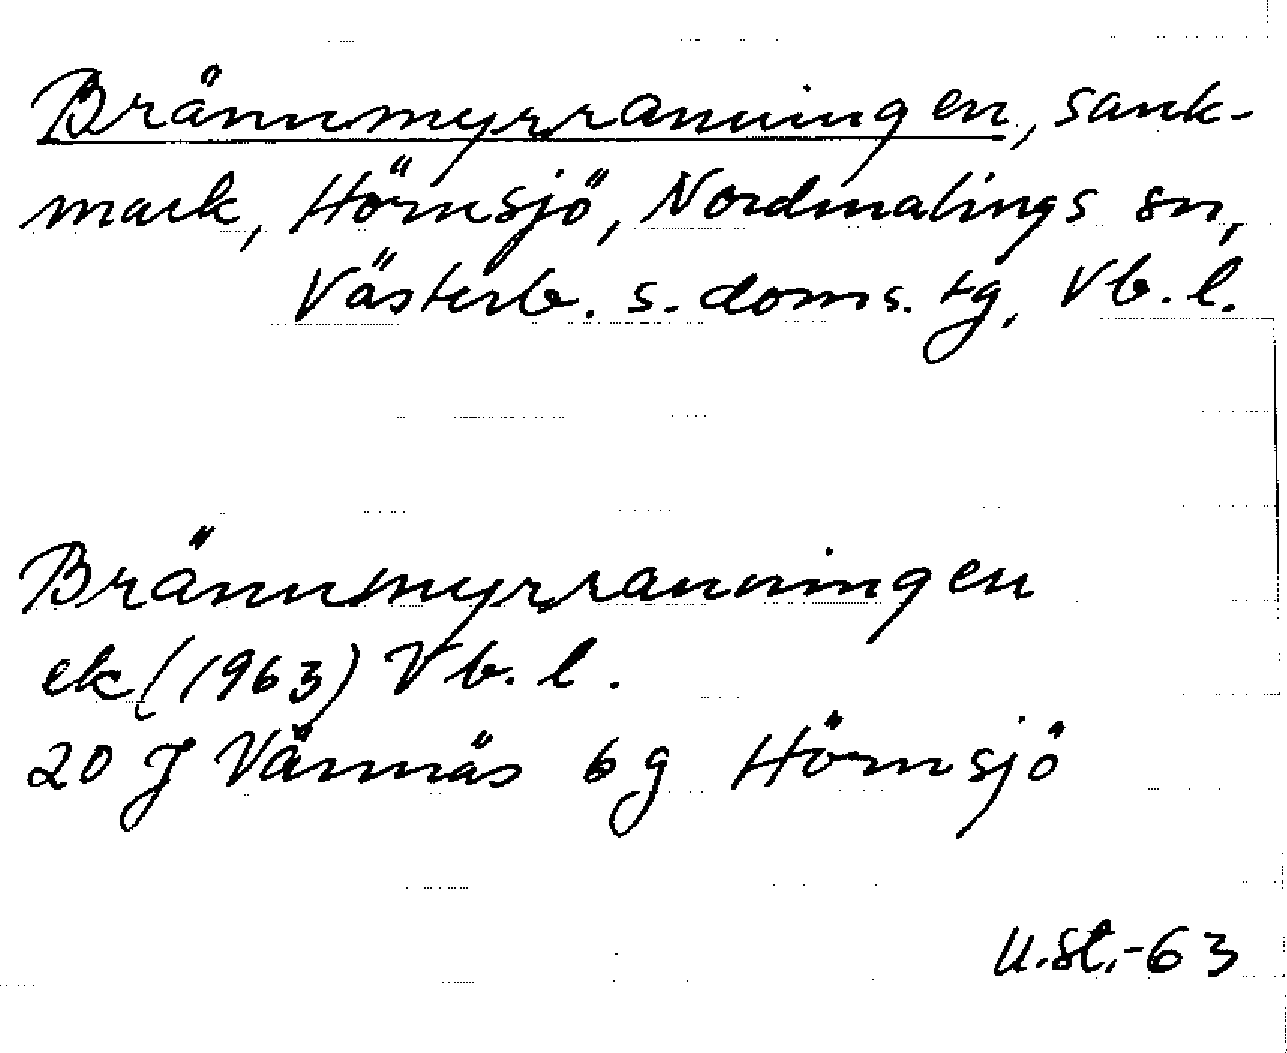 Brännmyrranningen, sank-
mark, Hörnsjö, Nordmalings sn,
Västerb. s. doms. tg, Vb. l.
Brännmyrranningen
ek (1963) Vb. l.
20 J Vännäs 6 g Hörnsjö
U.St.-63